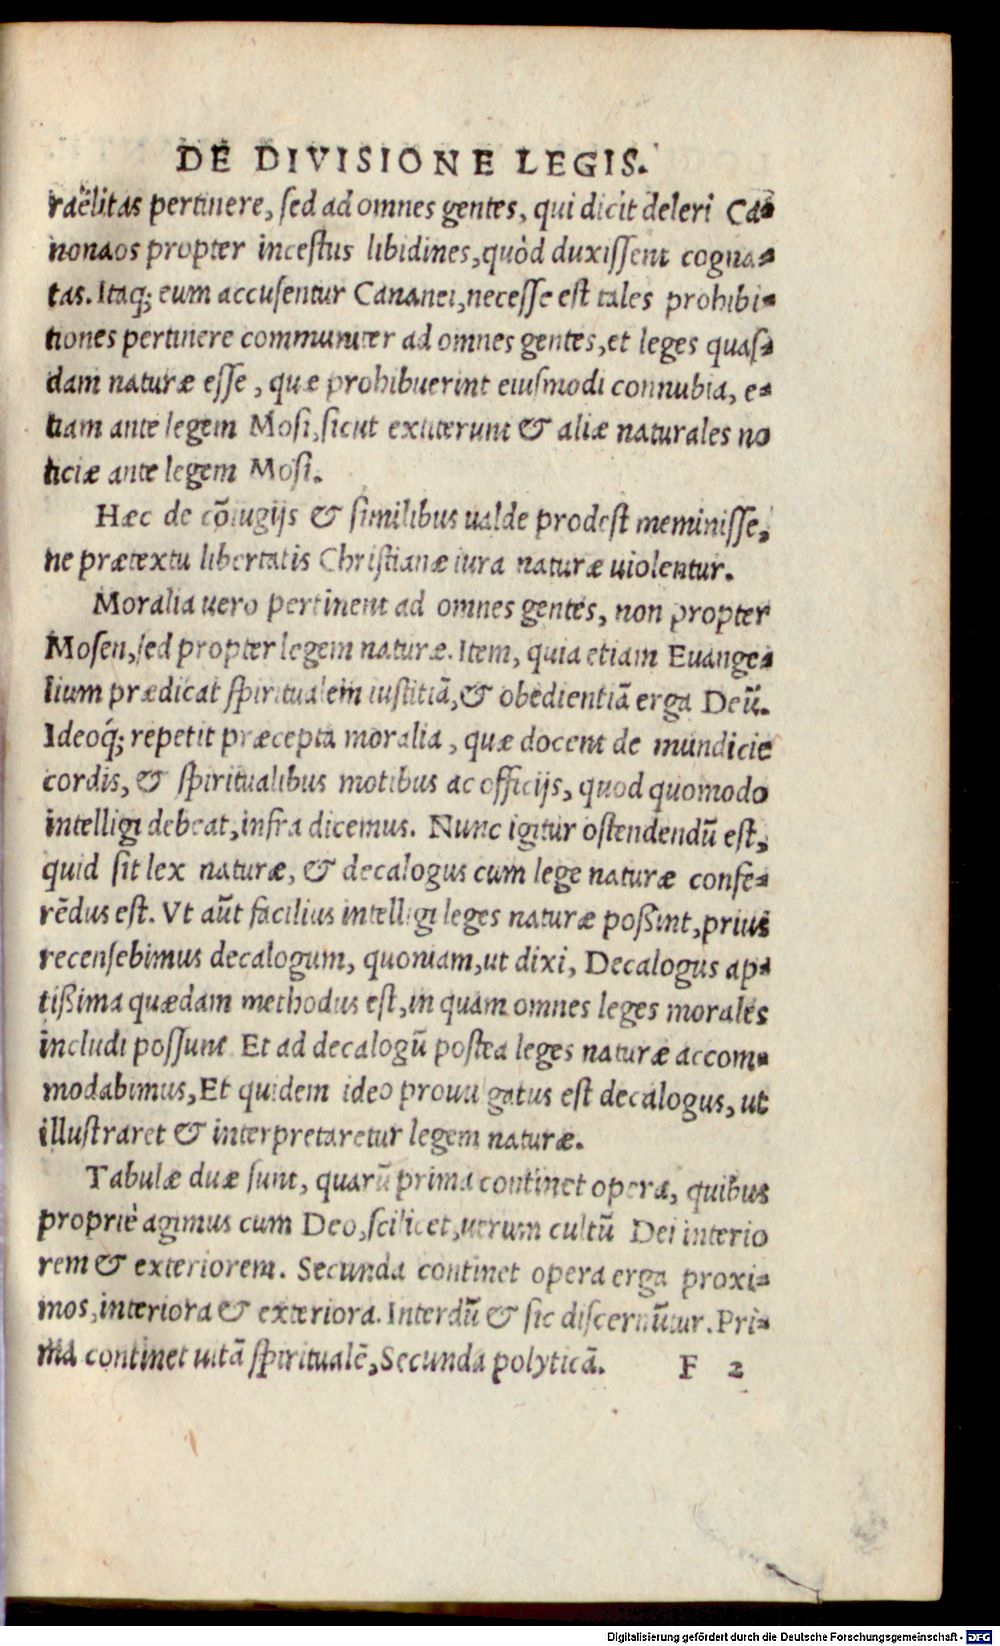 DE DIVISIONE LEGIS.
raëlitas pertinere, sed ad omnes gentes, qui dicit deleri Ca-
nonaos propter incestus libidines, quòd duxissent cogna-
tas. Itaq; eum accusentur Cananei, necesse est tales prohibi-
tiones pertinere communiter ad omnes gentes, et leges quas-
dam naturæ esse, quæ prohibuerint eiusmodi connubia, e-
tiam ante legem Mosi, sicut extiterunt & aliæ naturales no
ticiæ ante legem Mosi.
Hæc de cōiugijs & similibus ualde prodest meminisse,
ne prætextu libertatis Christianæ iura naturæ uiolentur.
Moralia uero pertinent ad omnes gentes, non propter
Mosen, sed propter legem naturæ. Item, quia etiam Euange-
lium prædicat spiritualem iustitiā, & obedientiā erga Deū.
Ideoq́; repetit præcepta moralia, quæ docent de mundicie
cordis, & spiritualibus motibus ac officijs, quod quomodo
intelligi debeat, infra dicemus. Nunc igitur ostendendū est,
quid sit lex naturæ, & decalogus cum lege naturæ confe-
rēdus est. Vt aūt facilius intelligi leges naturæ poßint, prius
recensebimus decalogum, quoniam, ut dixi, Decalogus ap-
tißima quædam methodus est, in quam omnes leges morales
includi possunt Et ad decalogū postea leges naturæ accom-
modabimus, Et quidem ideo gatus est decalogus, ut
illustraret & interpretaretur legem naturæ.
Tabulæ duæ sunt, quarū prima continet opera, quibus
propriè agimus cum Deo, scilicet, uerum cultū Dei interio
rem & exteriorem. Secunda continet opera erga proxi-
mos, interiora & exteriora. Interdū & sic discernūtur. Pri-
ma continet uitā spiritualē, Secunda polyticā. F 2
Digitalisierung gefördert durch die Deutsche Forschungsgemeinschaft - DFG